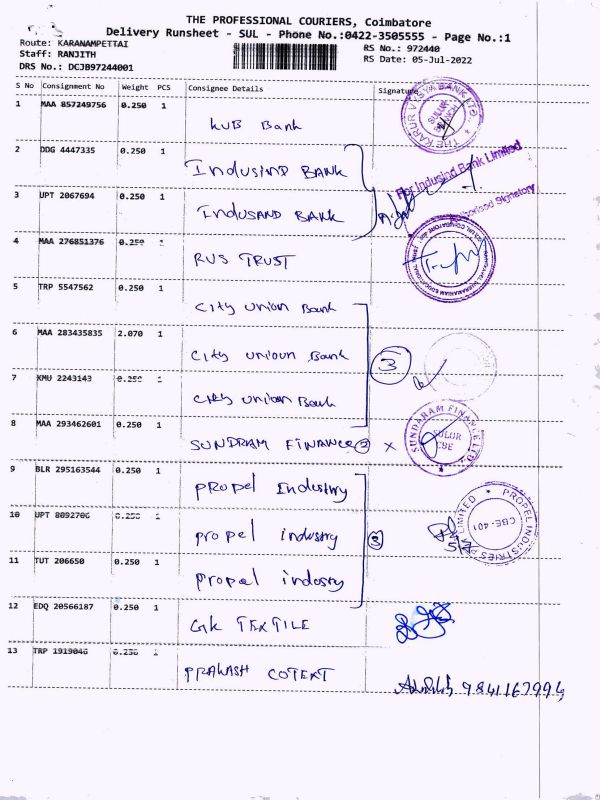 THE PROFESSIONAL COURIERS, Coimbatore
Delivery Runsheet - SUL - Phone No.:0422-3505555 - Page No.:1
Route: KARANAMPETTAI RS No.: 972440
Staff: RANJITH RS Date: 05-Jul-2022
DRS No.: DCJB97244001
S No Consignment No Weight PCS Consignee Details Signature
1 MAA 857249756 0.250 1
KVB Bank
THE KARUR VYSYA BANK LTD.
SULUR BRANCH
2 DDG 4447335 0.250 1
INDUSIND BANK
For Indusind Bank Limited
Authorised Signatory
3 UPT 2067694 0.250 1
INDUSAND BANK
4 MAA 276851376 0.250 1
RVS TRUST
5 TRP 5547562 0.250 1
City Union Bank
6 MAA 283435835 2.070 1
City unioun Bank
3
7 KMU 2243143 0.250 1
City union Bank
8 MAA 293462601 0.250 1
SUNDRAM FINANCE X
SUNDARAM FINANCE LTD
SULUR
CBE
9 BLR 295163544 0.250 1
PROPEL Industry
10 UPT 8092706 0.250 1
propel industry
3
PROPEL INDUSTRIES PVT LIMITED
CBE-401
11 TUT 206650 0.250 1
propel industry
12 EDQ 20566187 0.250 1
GK TEXTILE
13 TRP 1919046 0.250 1
PRAKASH COTEXT